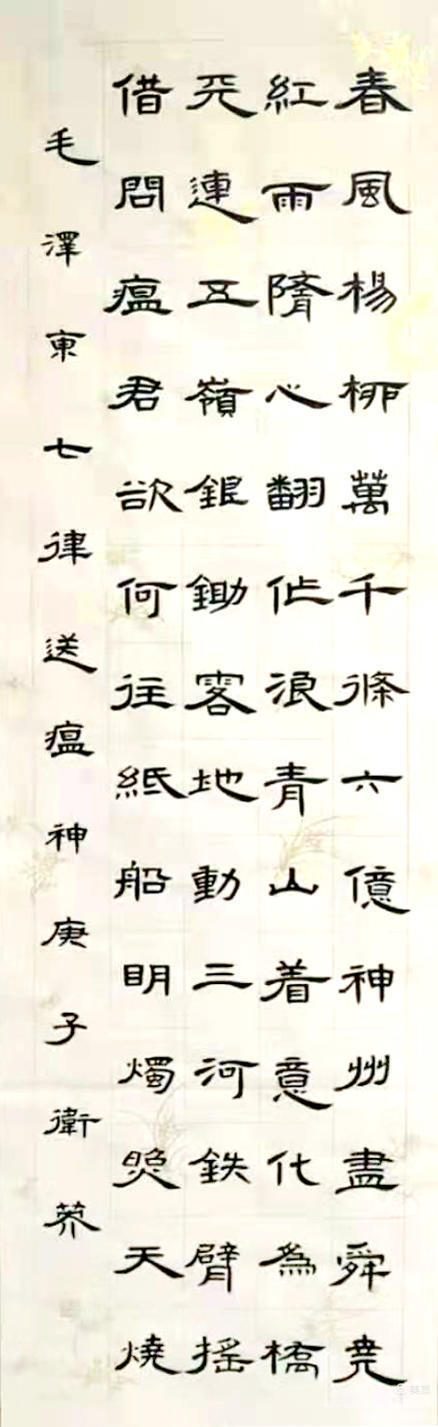 春風楊柳萬千條六億神州盡舜堯
紅雨隋心翻作浪青山着意化為橋
天連五嶺銀鋤客地動三河鉄臂搖
借問瘟君欲何往紙船明燭照天燒
毛澤東七律送瘟神庚子衛